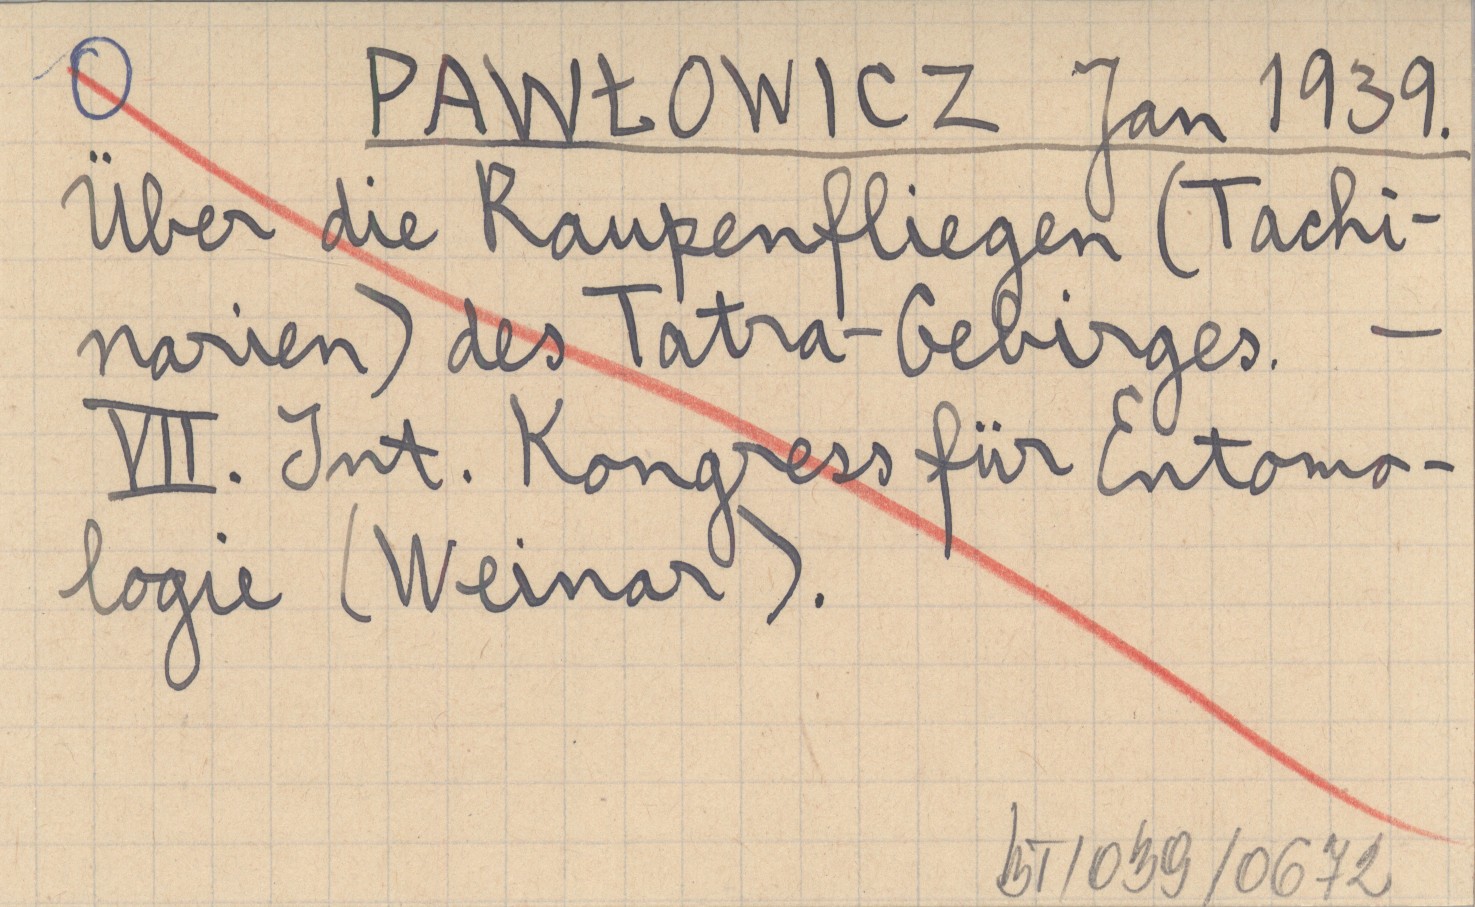 O PAWŁOWICZ Jan 1939.
Über die Raupenfliegen (Tachi-
narien) des Tatra-Gebirges. —
VII. Int. Kongress für Entomo-
logie (Weinar).
BT/039/0672